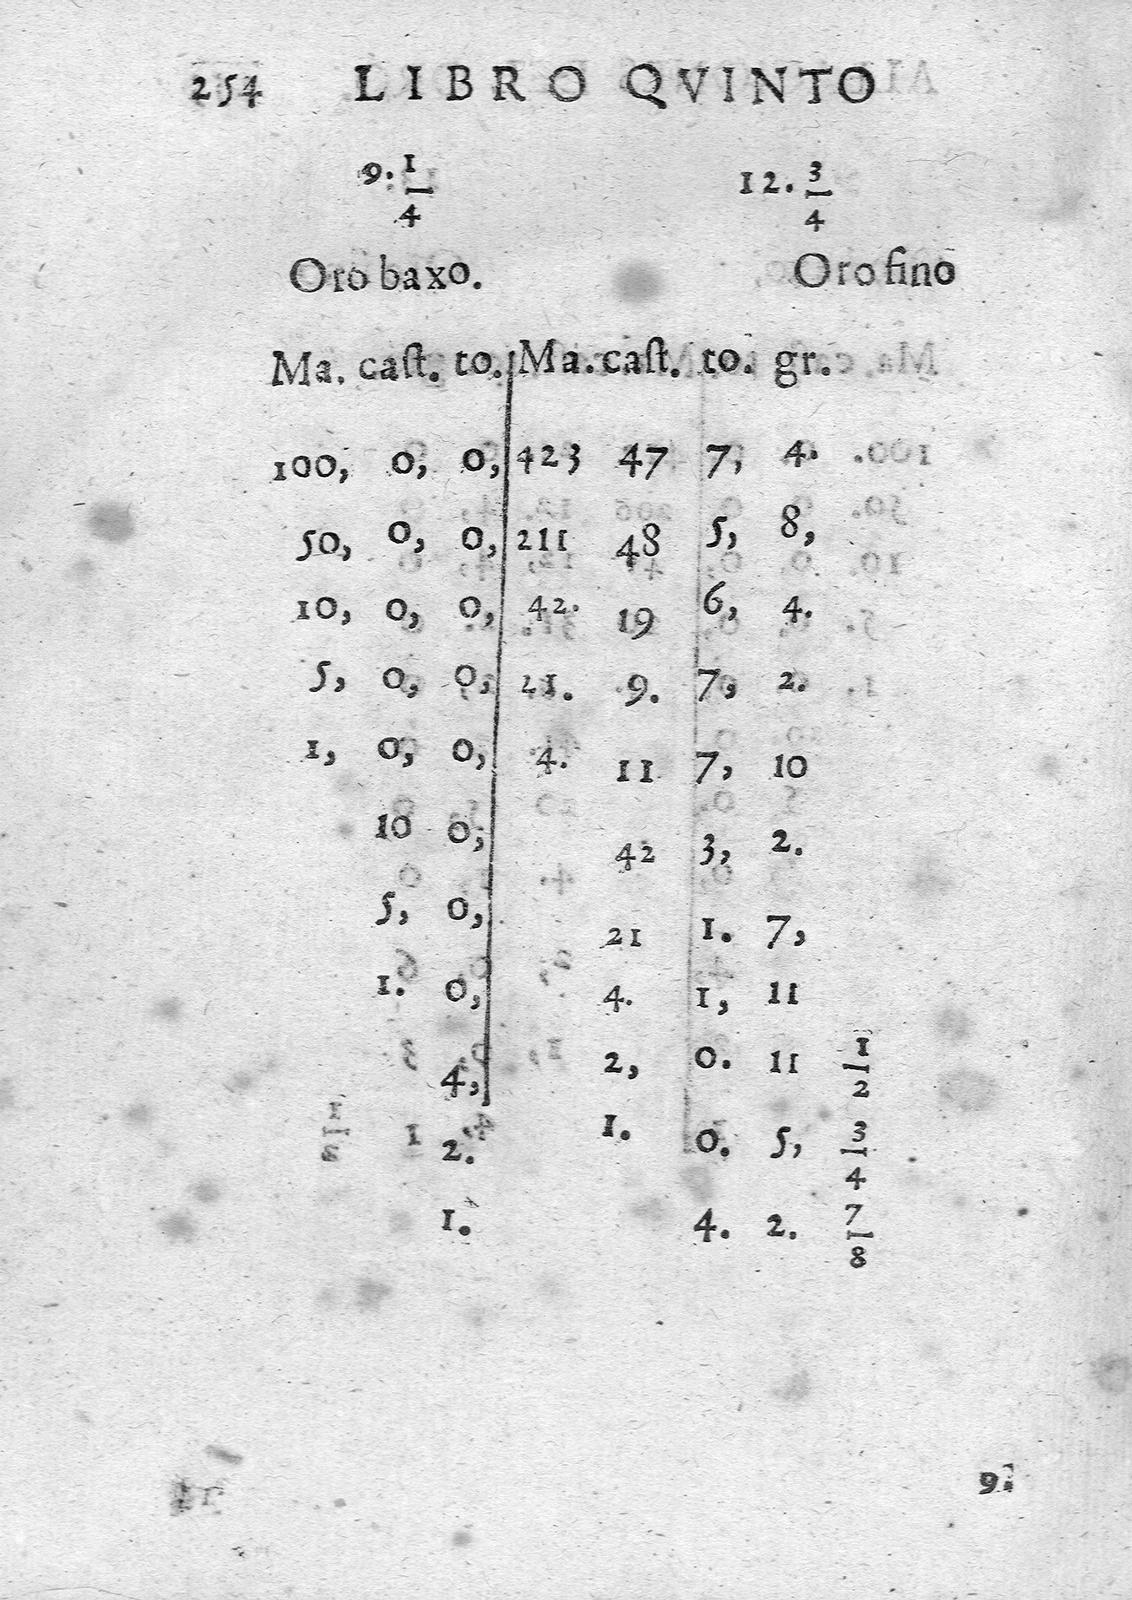 254 LIBRO QVINTO
9. 1/4 12. 3/4
Oro baxo. Oro fino
Ma. caſt. to. Ma. caſt. to. gr.
100, 0, 0, 423 47 7, 4.
50, 0, 0, 211 48 5, 8,
10, 0, 0, 42. 19 6, 4.
5, 0, 0, 21. 9. 7, 2.
1, 0, 0, 4. 11 7, 10
10 0, 42 3, 2.
5, 0, 21 1. 7,
1. 0, 4. 1, 11
4, 2, 0. 11 1/2
2. 1. 0. 5, 3/4
1. 4. 2. 7/8
9.